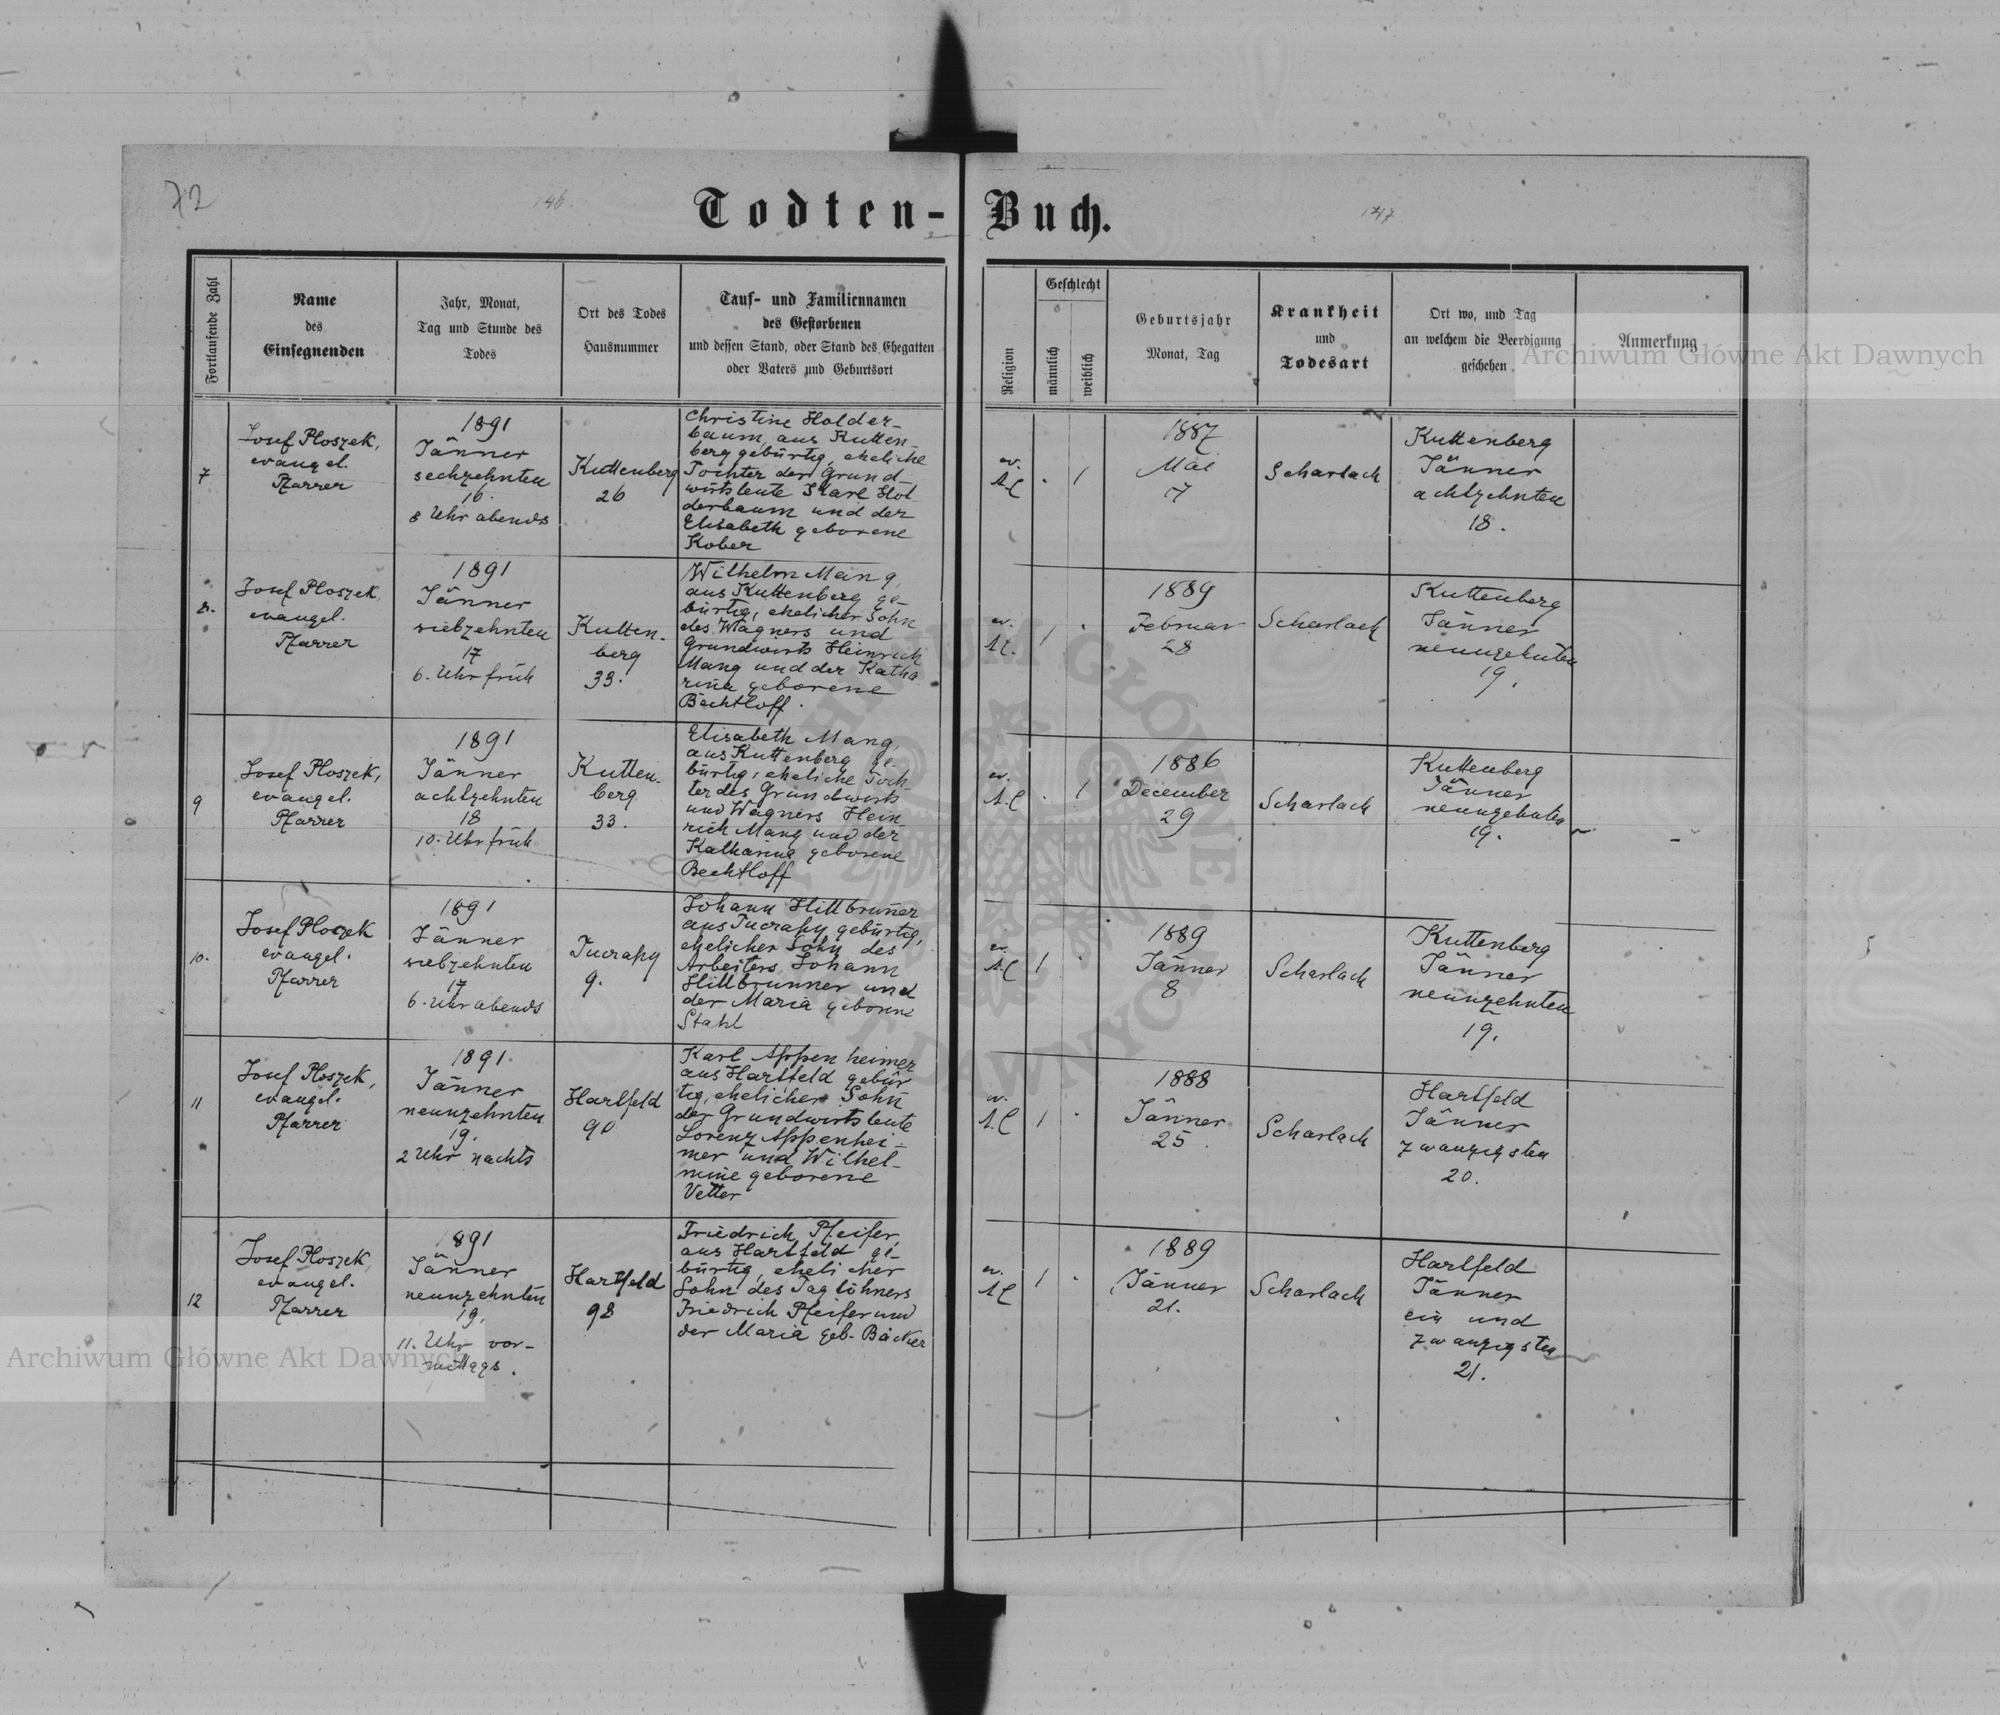 72
146.
147
Todten-Buch.
Fortlaufende Zahl
Name
des
Einsegnenden
Jahr, Monat,
Tag und Stunde des
Todes
Ort des Todes
Hausnummer
Tauf- und Familiennamen
des Gestorbenen
und dessen Stand, oder Stand des Ehegatten
oder Vaters und Geburtsort
Religion
Geschlecht
männlich
weiblich
Geburtsjahr
Monat, Tag
Krankheit
und
Todesart
Ort wo, und Tag
an welchem die Beerdigung
geschehen
Anmerkung
Archiwum Główne Akt Dawnych
7
Josef Ploszek,
evangel.
Pfarrer
1891
Jänner
sechzehnten
16.
8 Uhr abends
Kuttenberg
26
Christine Holder-
baum, aus Kutten-
berg gebürtig, eheliche
Tochter der Grund-
wirtsleute Karl Hol-
derbaum und der
Elisabeth geborene
Kober
ev.
A.C
.
1
1887
Mai
7
Scharlach
Kuttenberg
Jänner
achtzehnten
18.
8.
Josef Ploszek,
evangel.
Pfarrer
1891
Jänner
siebzehnten
17
6. Uhr früh
Kutten-
berg
33.
Wilhelm Mang,
aus Kuttenberg ge-
bürtig, ehelicher Sohn
des Wagners und
Grundwirts Heinrich
Mang und der Katha
rina geborene
Bechtloff.
ev.
A.C.
1
.
1889
Februar
28
Scharlach
Kuttenberg
Jänner
neunzehnten
19.
9
Josef Ploszek,
evangel.
Pfarrer
1891
Jänner
achtzehnten
18
10. Uhr früh
Kutten-
berg
33.
Elisabeth Mang,
aus Kuttenberg ge-
bürtig, eheliche Toch-
ter des Grundwirts
und Wagners Hein
rich Mang und der
Katharina geborene
Bechtloff
ev.
A.C
.
1
1886
December
29
Scharlach
Kuttenberg
Jänner
neunzehnten
19.
10.
Josef Ploszek
evangel.
Pfarrer
1891
Jänner
siebzehnten
17
6. Uhr abends
Tucrapy
9.
Johann Hillbruner
aus Tucrapy gebürtig,
ehelicher Sohn des
Arbeiters Johann
Hillbrunner und
der Maria geborene
Stahl
ev.
A.C
1
.
1889
Jänner
8
Scharlach
Kuttenberg
Jänner
neunzehnten
19.
11
Josef Ploszek,
evangel.
Pfarrer
1891
Jänner
neunzehnten
19.
2 Uhr nachts
Hartfeld
90
Karl Appenheimer
aus Hartfeld gebür
tig, ehelicher Sohn
der Grundwirtsleute
Lorenz Appenhei-
mer und Wilhel-
mine geborene
Vetter
ev.
A.C
1
.
1888
Jänner
25
Scharlach
Hartfeld
Jänner
zwanzigsten
20.
12
Josef Ploszek,
evangel.
Pfarrer
1891
Jänner
neunzehnten
19.
11. Uhr vor-
mittags.
Hartfeld
98
Friedrich Pfeifer
aus Hartfeld ge-
bürtig, ehelicher
Sohn des Taglöhners
Friedrich Pfeifer und
der Maria geb. Bäcker
ev.
A.C
1
.
1889
Jänner
21.
Scharlach
Hartfeld
Jänner
ein und
zwanzigsten
21.
Archiwum Główne Akt Dawnych